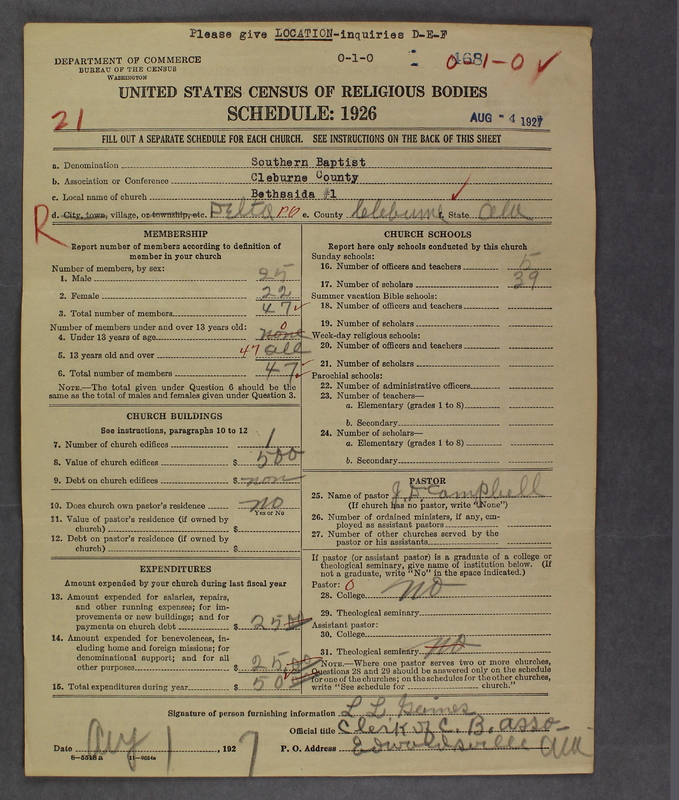 Please give LOCATION-inquiries D-E-F
DEPARTMENT OF COMMERCE
BUREAU OF THE CENSUS
WASHINGTON
0-1-0
168
0-1-0 ✓
UNITED STATES CENSUS OF RELIGIOUS BODIES
SCHEDULE: 1926
21
AUG - 4 1927
FILL OUT A SEPARATE SCHEDULE FOR EACH CHURCH. SEE INSTRUCTIONS ON THE BACK OF THIS SHEET
a. Denomination Southern Baptist
b. Association or Conference Cleburne County
c. Local name of church Bethsaida #1
d. City, town, village, or township, etc. Delta PO e. County Cleburne f. State Ala
R
MEMBERSHIP
Report number of members according to definition of
member in your church
Number of members, by sex:
1. Male 25
2. Female 22
3. Total number of members 47 ✓
Number of members under and over 13 years old:
4. Under 13 years of age none 0
5. 13 years old and over 47 all
6. Total number of members 47 ✓
NOTE.—The total given under Question 6 should be the
same as the total of males and females given under Question 3.
CHURCH BUILDINGS
See instructions, paragraphs 10 to 12
7. Number of church edifices 1
8. Value of church edifices $ 500
9. Debt on church edifices $ non
10. Does church own pastor's residence no
Yes or No
11. Value of pastor's residence (if owned by
church) $
12. Debt on pastor's residence (if owned by
church) $
EXPENDITURES
Amount expended by your church during last fiscal year
13. Amount expended for salaries, repairs,
and other running expenses; for im-
provements or new buildings; and for
payments on church debt $ 25 00
14. Amount expended for benevolences, in-
cluding home and foreign missions; for
denominational support; and for all
other purposes $ 25.00
15. Total expenditures during year $ 50 00
CHURCH SCHOOLS
Report here only schools conducted by this church
Sunday schools:
16. Number of officers and teachers 5
17. Number of scholars 39
Summer vacation Bible schools:
18. Number of officers and teachers
19. Number of scholars
Week-day religious schools:
20. Number of officers and teachers
21. Number of scholars
Parochial schools:
22. Number of administrative officers
23. Number of teachers—
a. Elementary (grades 1 to 8)
b. Secondary
24. Number of scholars—
a. Elementary (grades 1 to 8)
b. Secondary
PASTOR
25. Name of pastor J. D. Campbell
(If church has no pastor, write "None")
26. Number of ordained ministers, if any, em-
ployed as assistant pastors
27. Number of other churches served by the
pastor or his assistants
If pastor (or assistant pastor) is a graduate of a college or
theological seminary, give name of institution below. (If
not a graduate, write "No" in the space indicated.)
Pastor: 0
28. College no
29. Theological seminary
Assistant pastor:
30. College
31. Theological seminary no
NOTE.—Where one pastor serves two or more churches,
Questions 28 and 29 should be answered only on the schedule
for one of the churches; on the schedules for the other churches,
write "See schedule for church."
Signature of person furnishing information L. L. Gaines
Official title Clerk of C. B. asso-
Date Aug 1, 1927 P. O. Address Edwardsville Ala
8-5518 a 11-9034a